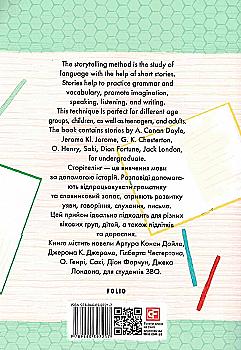 The storytelling method is the study of
language with the help of short stories.
Stories help to practice grammar and
vocabulary, promote imagination,
speaking, listening, and writing.
This technique is perfect for different age
groups, children, as well as teenagers, and adults.
The book contains stories by A. Conan Doyle,
Jerome Kl. Jerome, G. K. Chesterton,
O. Henry, Saki, Dion Fortune, Jack London,
for undergraduate.
Сторітелінг — це вивчення мови
за допомогою історій. Розповіді допомага-
ють відпрацьовувати граматику
та словниковий запас, сприяють розвитку
уяви, говоріння, слухання, письма.
Цей прийом ідеально підходить для різних
вікових груп, дітей, а також підлітків
та дорослих.
Книга містить новели Артура Конан Дойла,
Джерома К. Джерома, Гілберта Честертона,
О. Генрі, Сакі, Діон Форчун, Джека
Лондона, для студентів ЗВО.
FOLIO